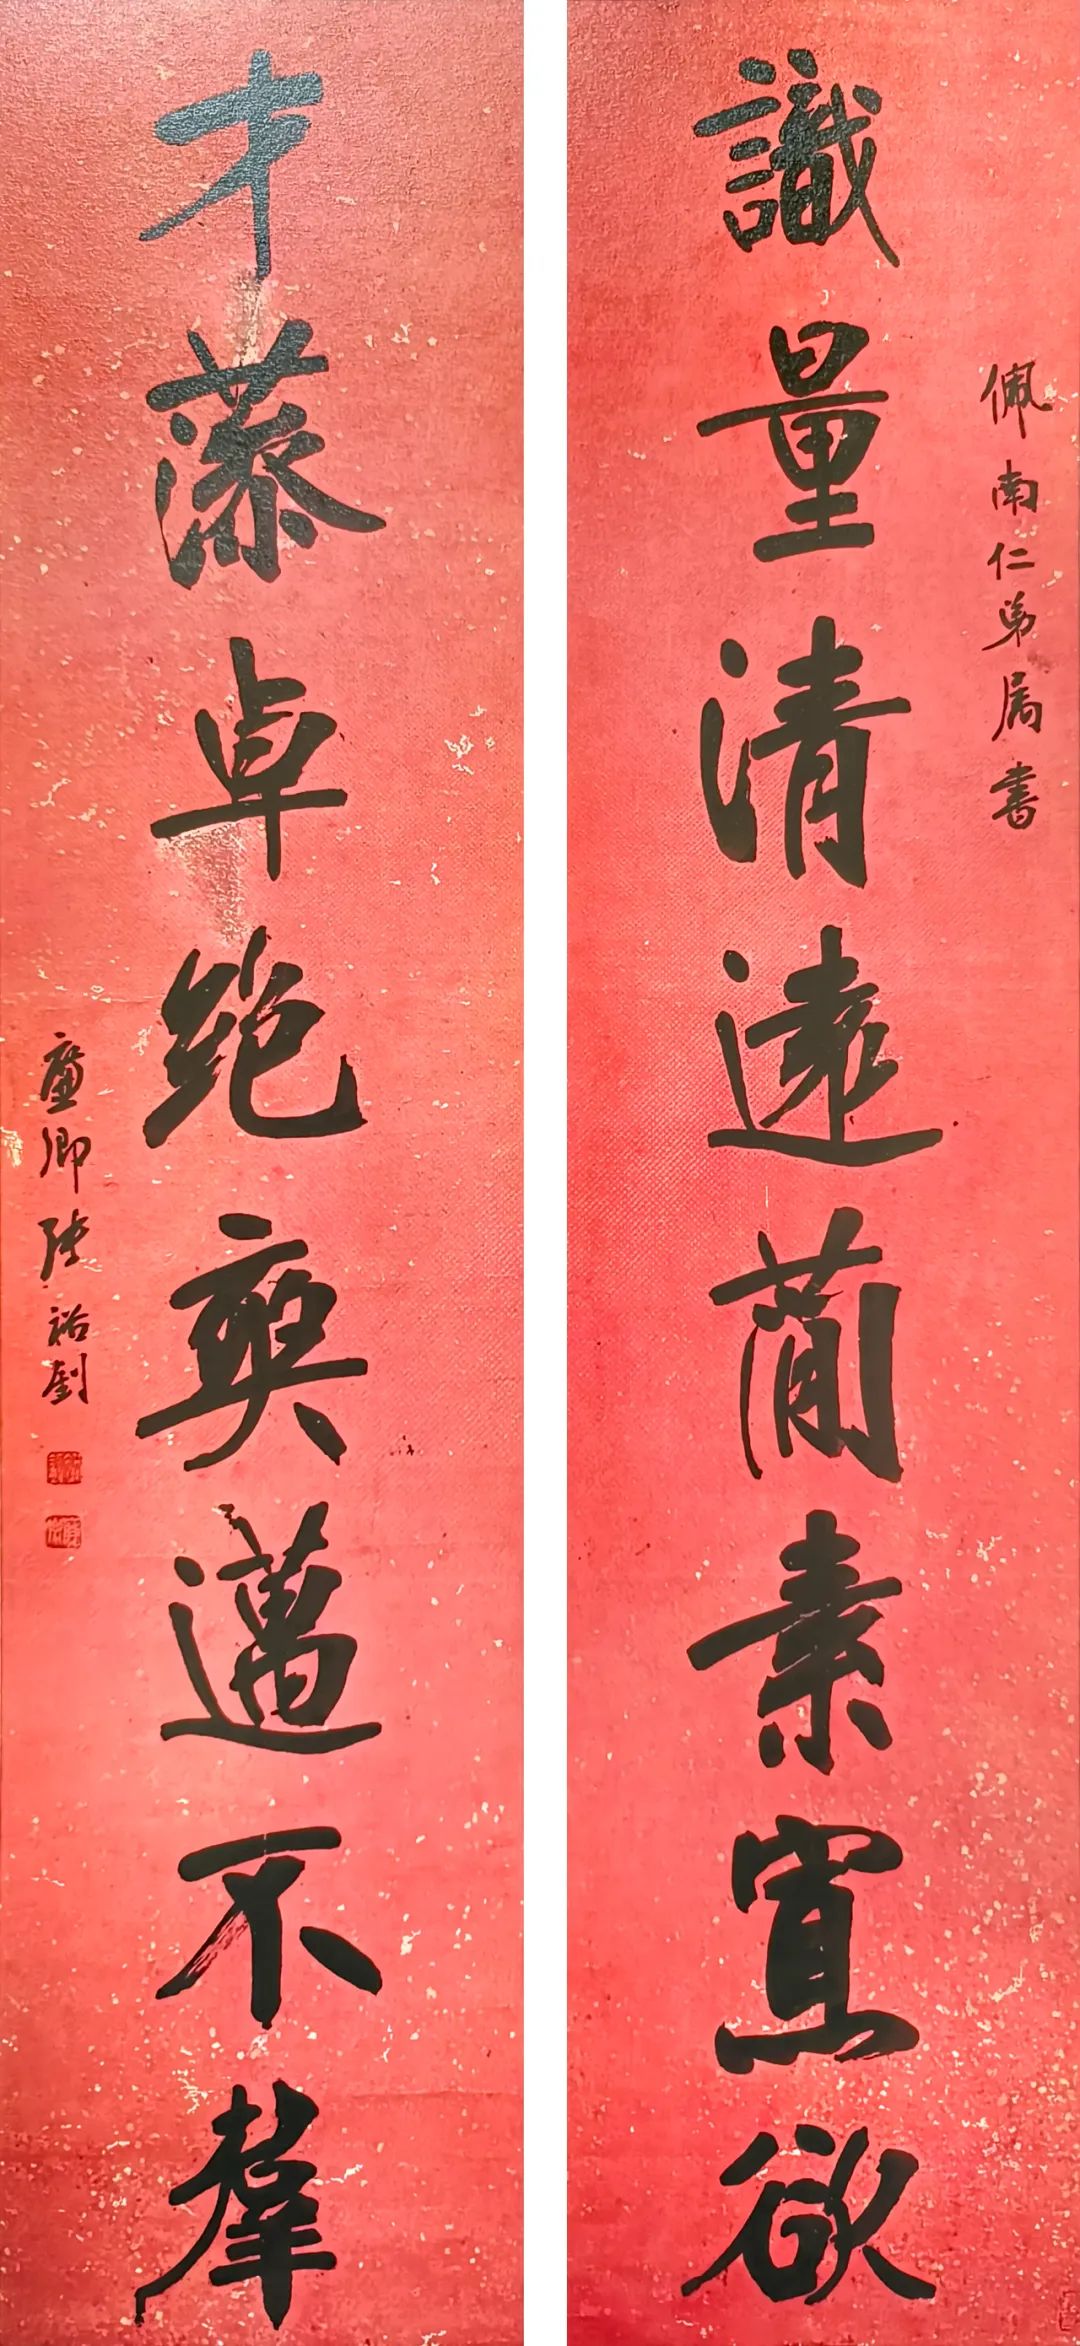 識量清遠簡素寡欲
佩南仁弟屬書
才藻卓絶爽邁不羣
廉卿張裕釗